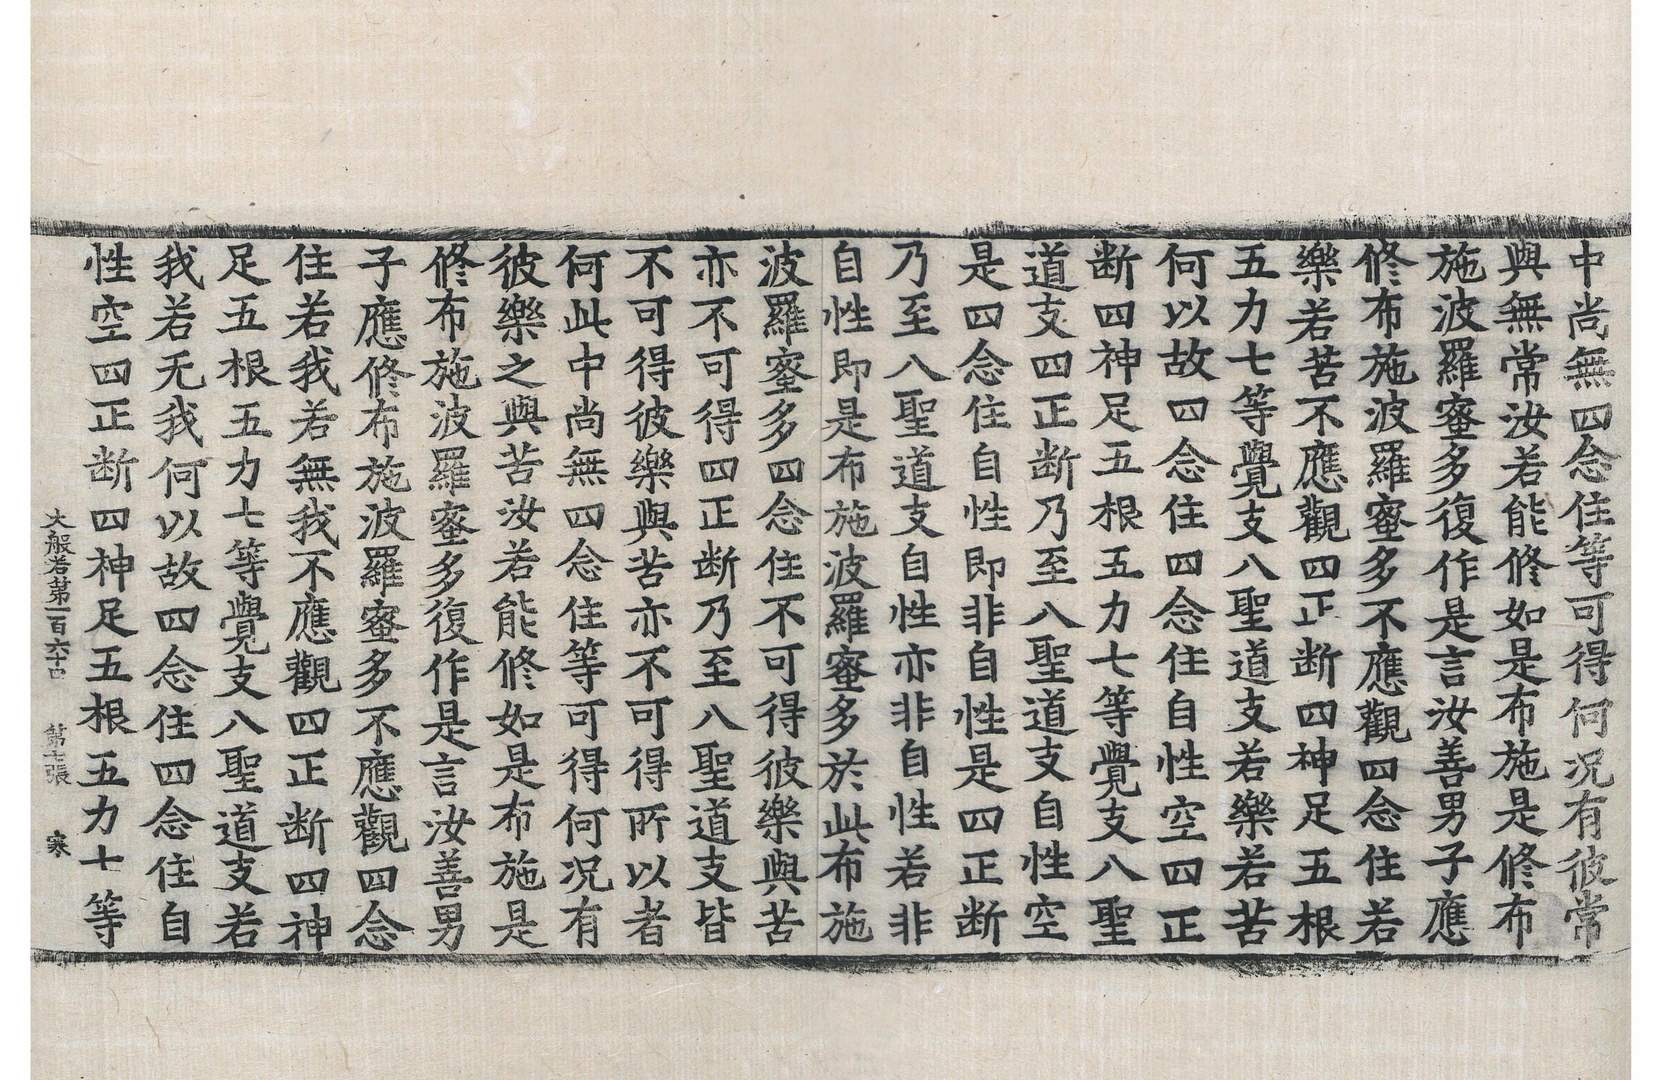 中尚無四念住等可得何況有彼常
與無常汝若能修如是布施是修布
施波羅蜜多復作是言汝善男子應
修布施波羅蜜多不應觀四念住若
樂若苦不應觀四正断四神足五根
五力七等覺支八聖道支若樂若苦
何以故四念住四念住自性空四正
断四神足五根五力七等覺支八聖
道支四正断乃至八聖道支自性空
是四念住自性即非自性是四正断
乃至八聖道支自性亦非自性若非
自性即是布施波羅蜜多於此布施
波羅蜜多四念住不可得彼樂與苦
亦不可得四正断乃至八聖道支皆
不可得彼樂與苦亦不可得所以者
何此中尚無四念住等可得何況有
彼樂之與苦汝若能修如是布施是
修布施波羅蜜多復作是言汝善男
子應修布施波羅蜜多不應觀四念
住若我若無我不應觀四正断四神
足五根五力七等覺支八聖道支若
我若无我何以故四念住四念住自
性空四正断四神足五根五力七等
大般若第一百六十四 第七張 寒